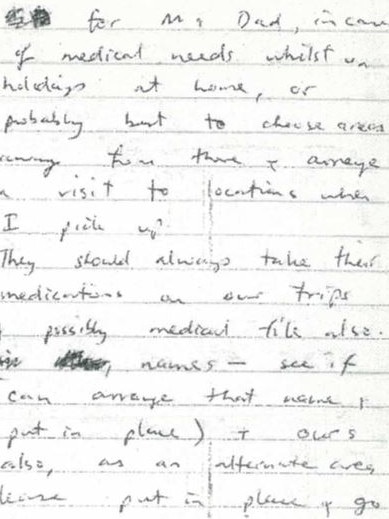 for My Dad, in
of medical needs whilst on
holidays at home, or
probably best to choose areas
away from there + arrange
a visit to locations when
I pick up?
They should always take their
medications on our trips
possibly medical file also.
names - see if
can arrange that name
put in place) + ours
also, as an alternate area
put in place + go